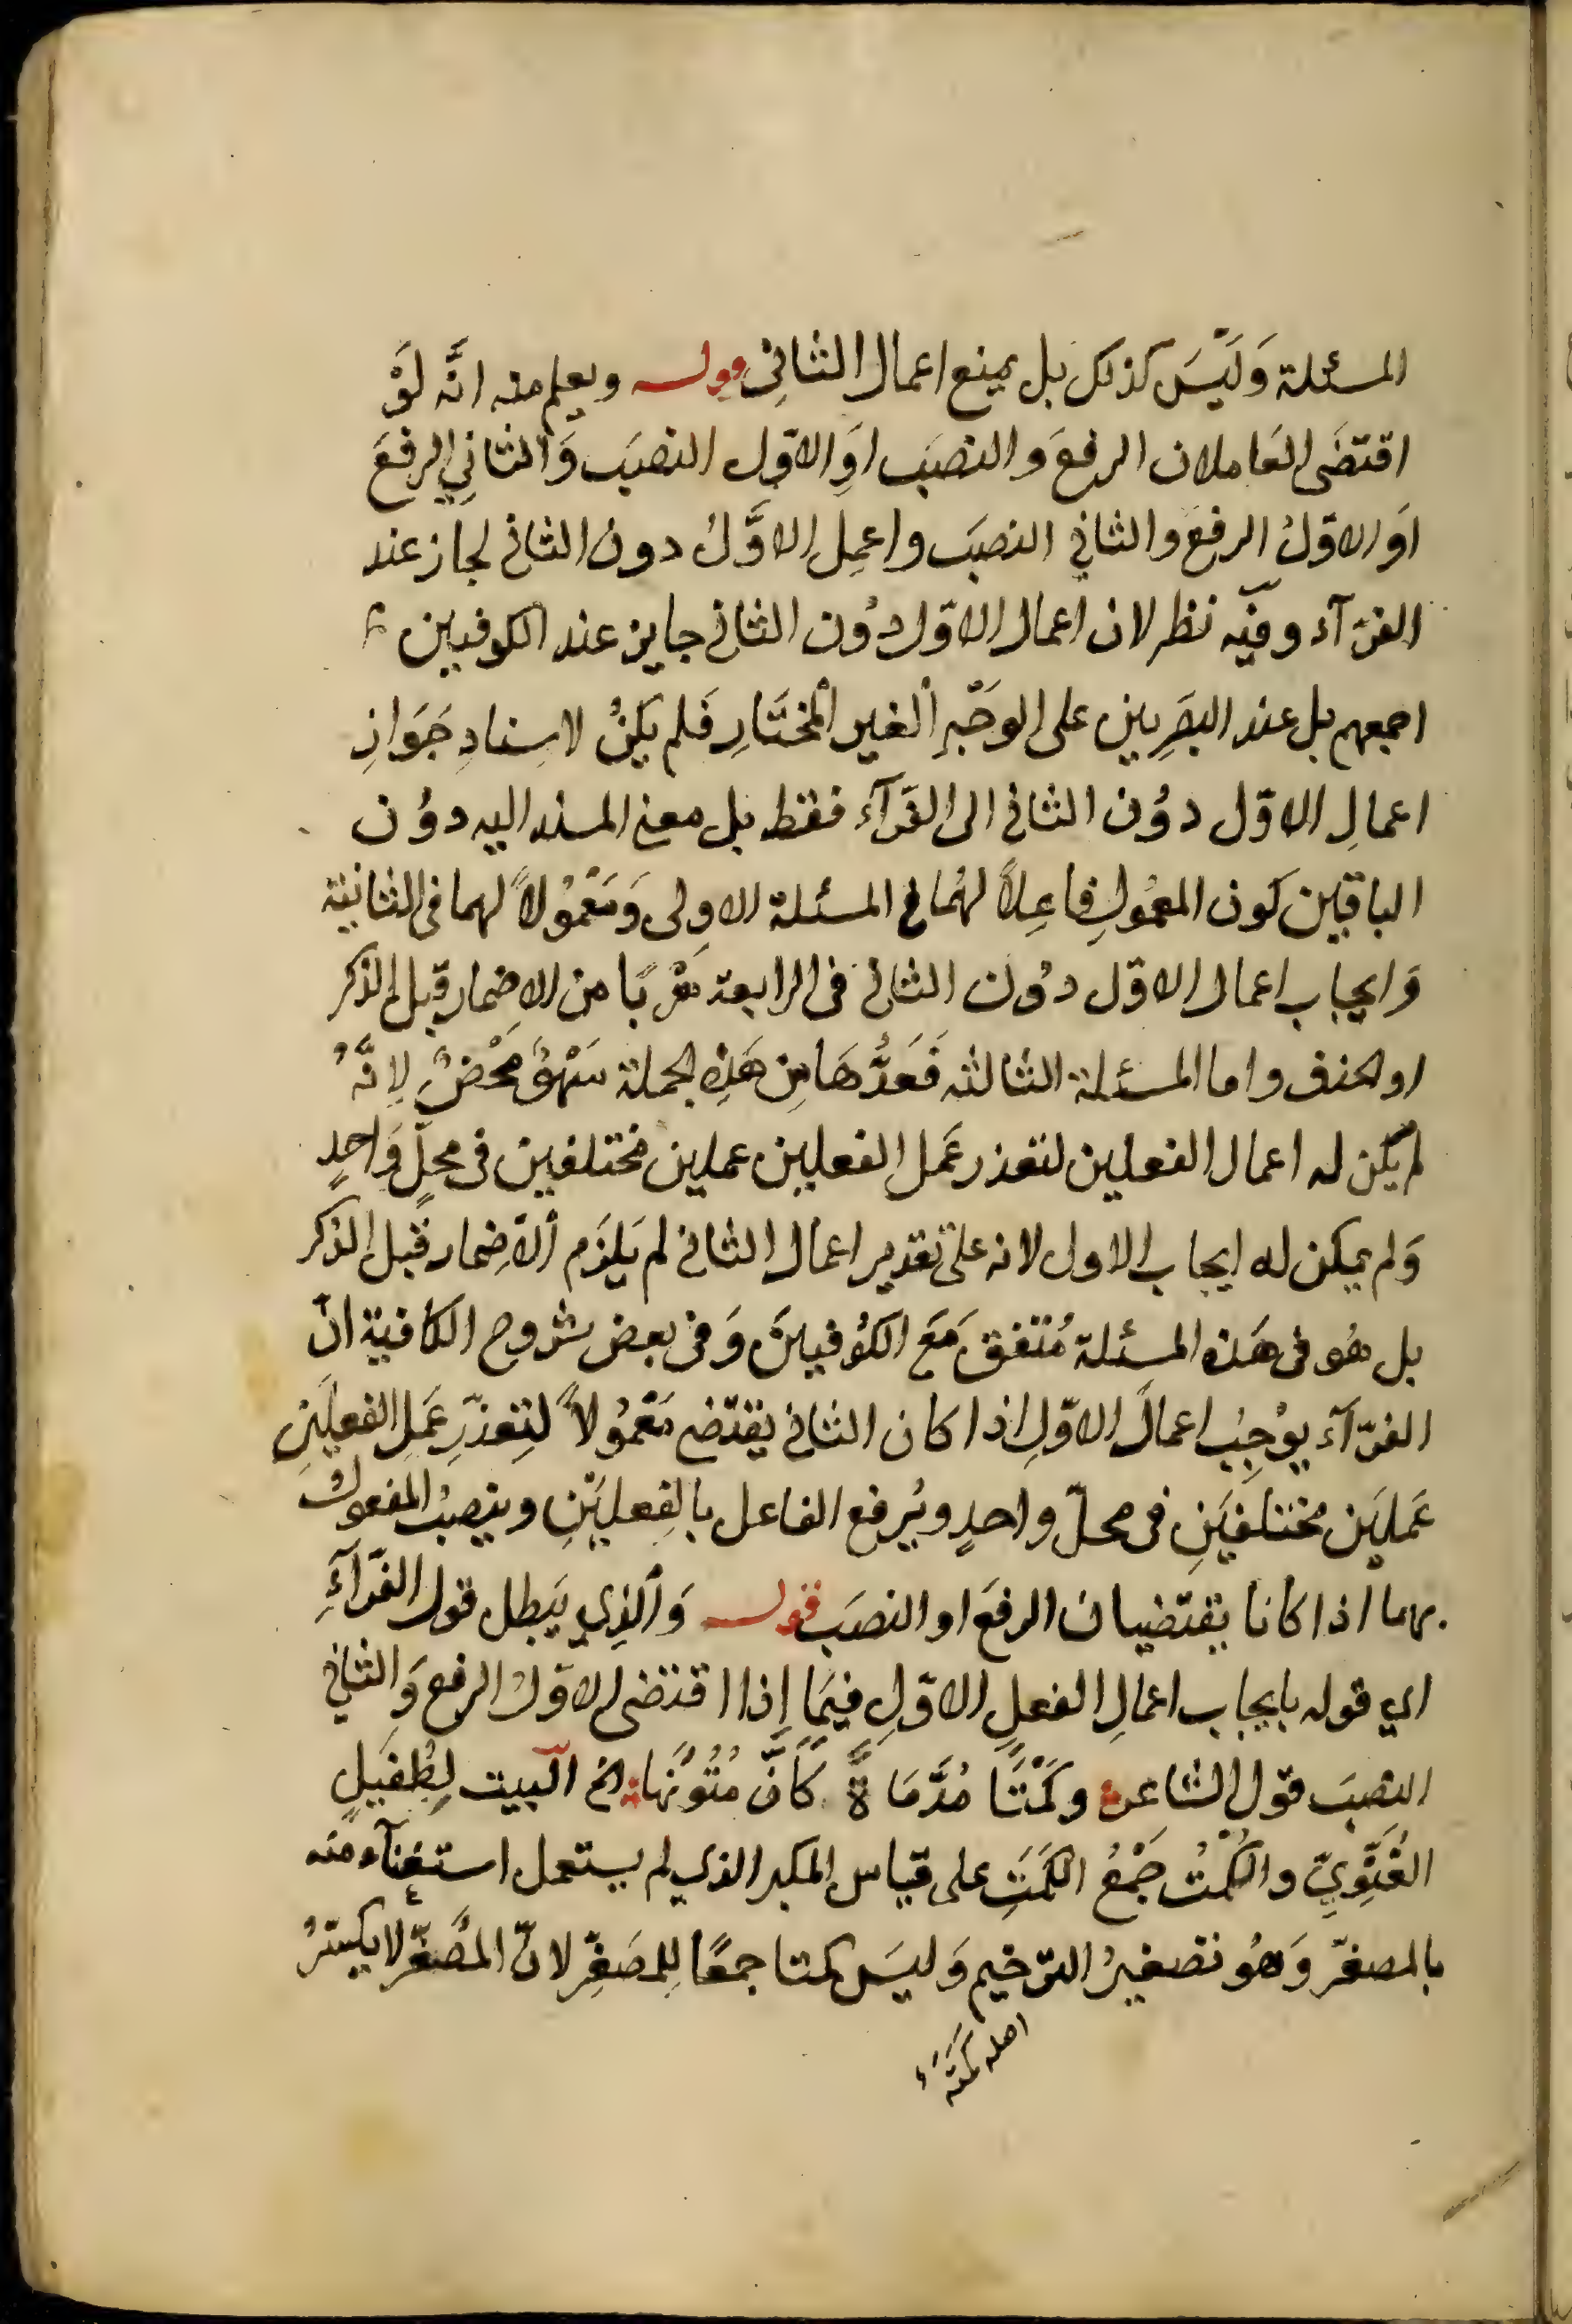 المسئلة وَلَيْسَ كذلك بل يمنع اعمال الثانِى قوله ويعلم منه انَّه لَوْ
اقتضَى العَاملان الرفعَ والنصبَ اوَ الاوّل النصبَ وَالثانِي الرفعَ
اوَ الاوّلُ الرفعَ والثانِي النصبَ واعمِل الاوَّلُ دون الثانى لجاز عند
الفرّآء وفيْه نظر لان اعمال الاوّل دوُن الثانى جايز عند الكوفيين
اجمعهم بل عند البصَرِيين على الوَجْهِ الغير المْختَارِ فَلم يَكنْ لاسِنادِ جَوَازِ
اعمالِ الاوّل دوُن الثانى الى الفَرّآء فقط بل معنى المسند اليه دوُن
الباقين كَون المعمُولِ فاعِلاً لهُما فى المسئلة الاولى وَمَعْمُولاً لهما فى الثانية
وَايجاب اعمال الاوّل دوُن الثانى فى الرابعة هَرْبًا من الاضمار قبل الذكر
او الحذف واما المسئلة الثالثه فَعَدُّهَا مِن هَذِه الجملة سَهْوٌ مَحْضٌ لِانَّهُ
لم يكن له اعمال الفعلين لتعذر عَمَل الفعلين عملين مختلفين فى محلٍّ وَاحدٍ
وَلم يمكن له ايجاب الاول لانه على تقدير اعمال الثانى لم يَلزَم الاضِمار قبل الذكر
بل هُو فى هَذه المسئلة مُتفق مَعَ الكوُفيينَ وَفى بعض شروح الكافية انّ
الفرّآء يوُجِبُ اعمالَ الاوّلِ اذا كان الثانى يقتضى مَعْمُولاً لتِعذّرِ عَمَلِ الفعلَينِ
عَملَيَن مختلفَيَنِ فى محلّ واحدٍ ويُرفع الفاعل بالفِعليَنِْ وينصبُ المفعولُ
بهما اذا كانا يقتضيان الرفعَ او النصبَ قوله وَالذِي يَبطل قول الفَرّآءِ
اي قوله بايجاب اعمالِ الفعلِ الاوّلِ فيمَا إذا اقتضى الاوّلُ الرفع وَالثانِي
النصبَ قول الشاعر وكمْتًا مُدَّمَاةً كأنّ مُتُوُنَهَا الخ البيت لِطُفَيلٍ
الغَنَوِيِّ والكُمْتُ جَمْعُ الكَمَتِ على قياس المكبر الذي لم يستعمل استغنآء منه
بالمصغّر وَهوُ تصغيرُ الترخيم وَليسَ كمتا جمعًا لِلمصَغّرِ لانّ المُصَغّر لا يكسّرُ
اصله كَمَتَه